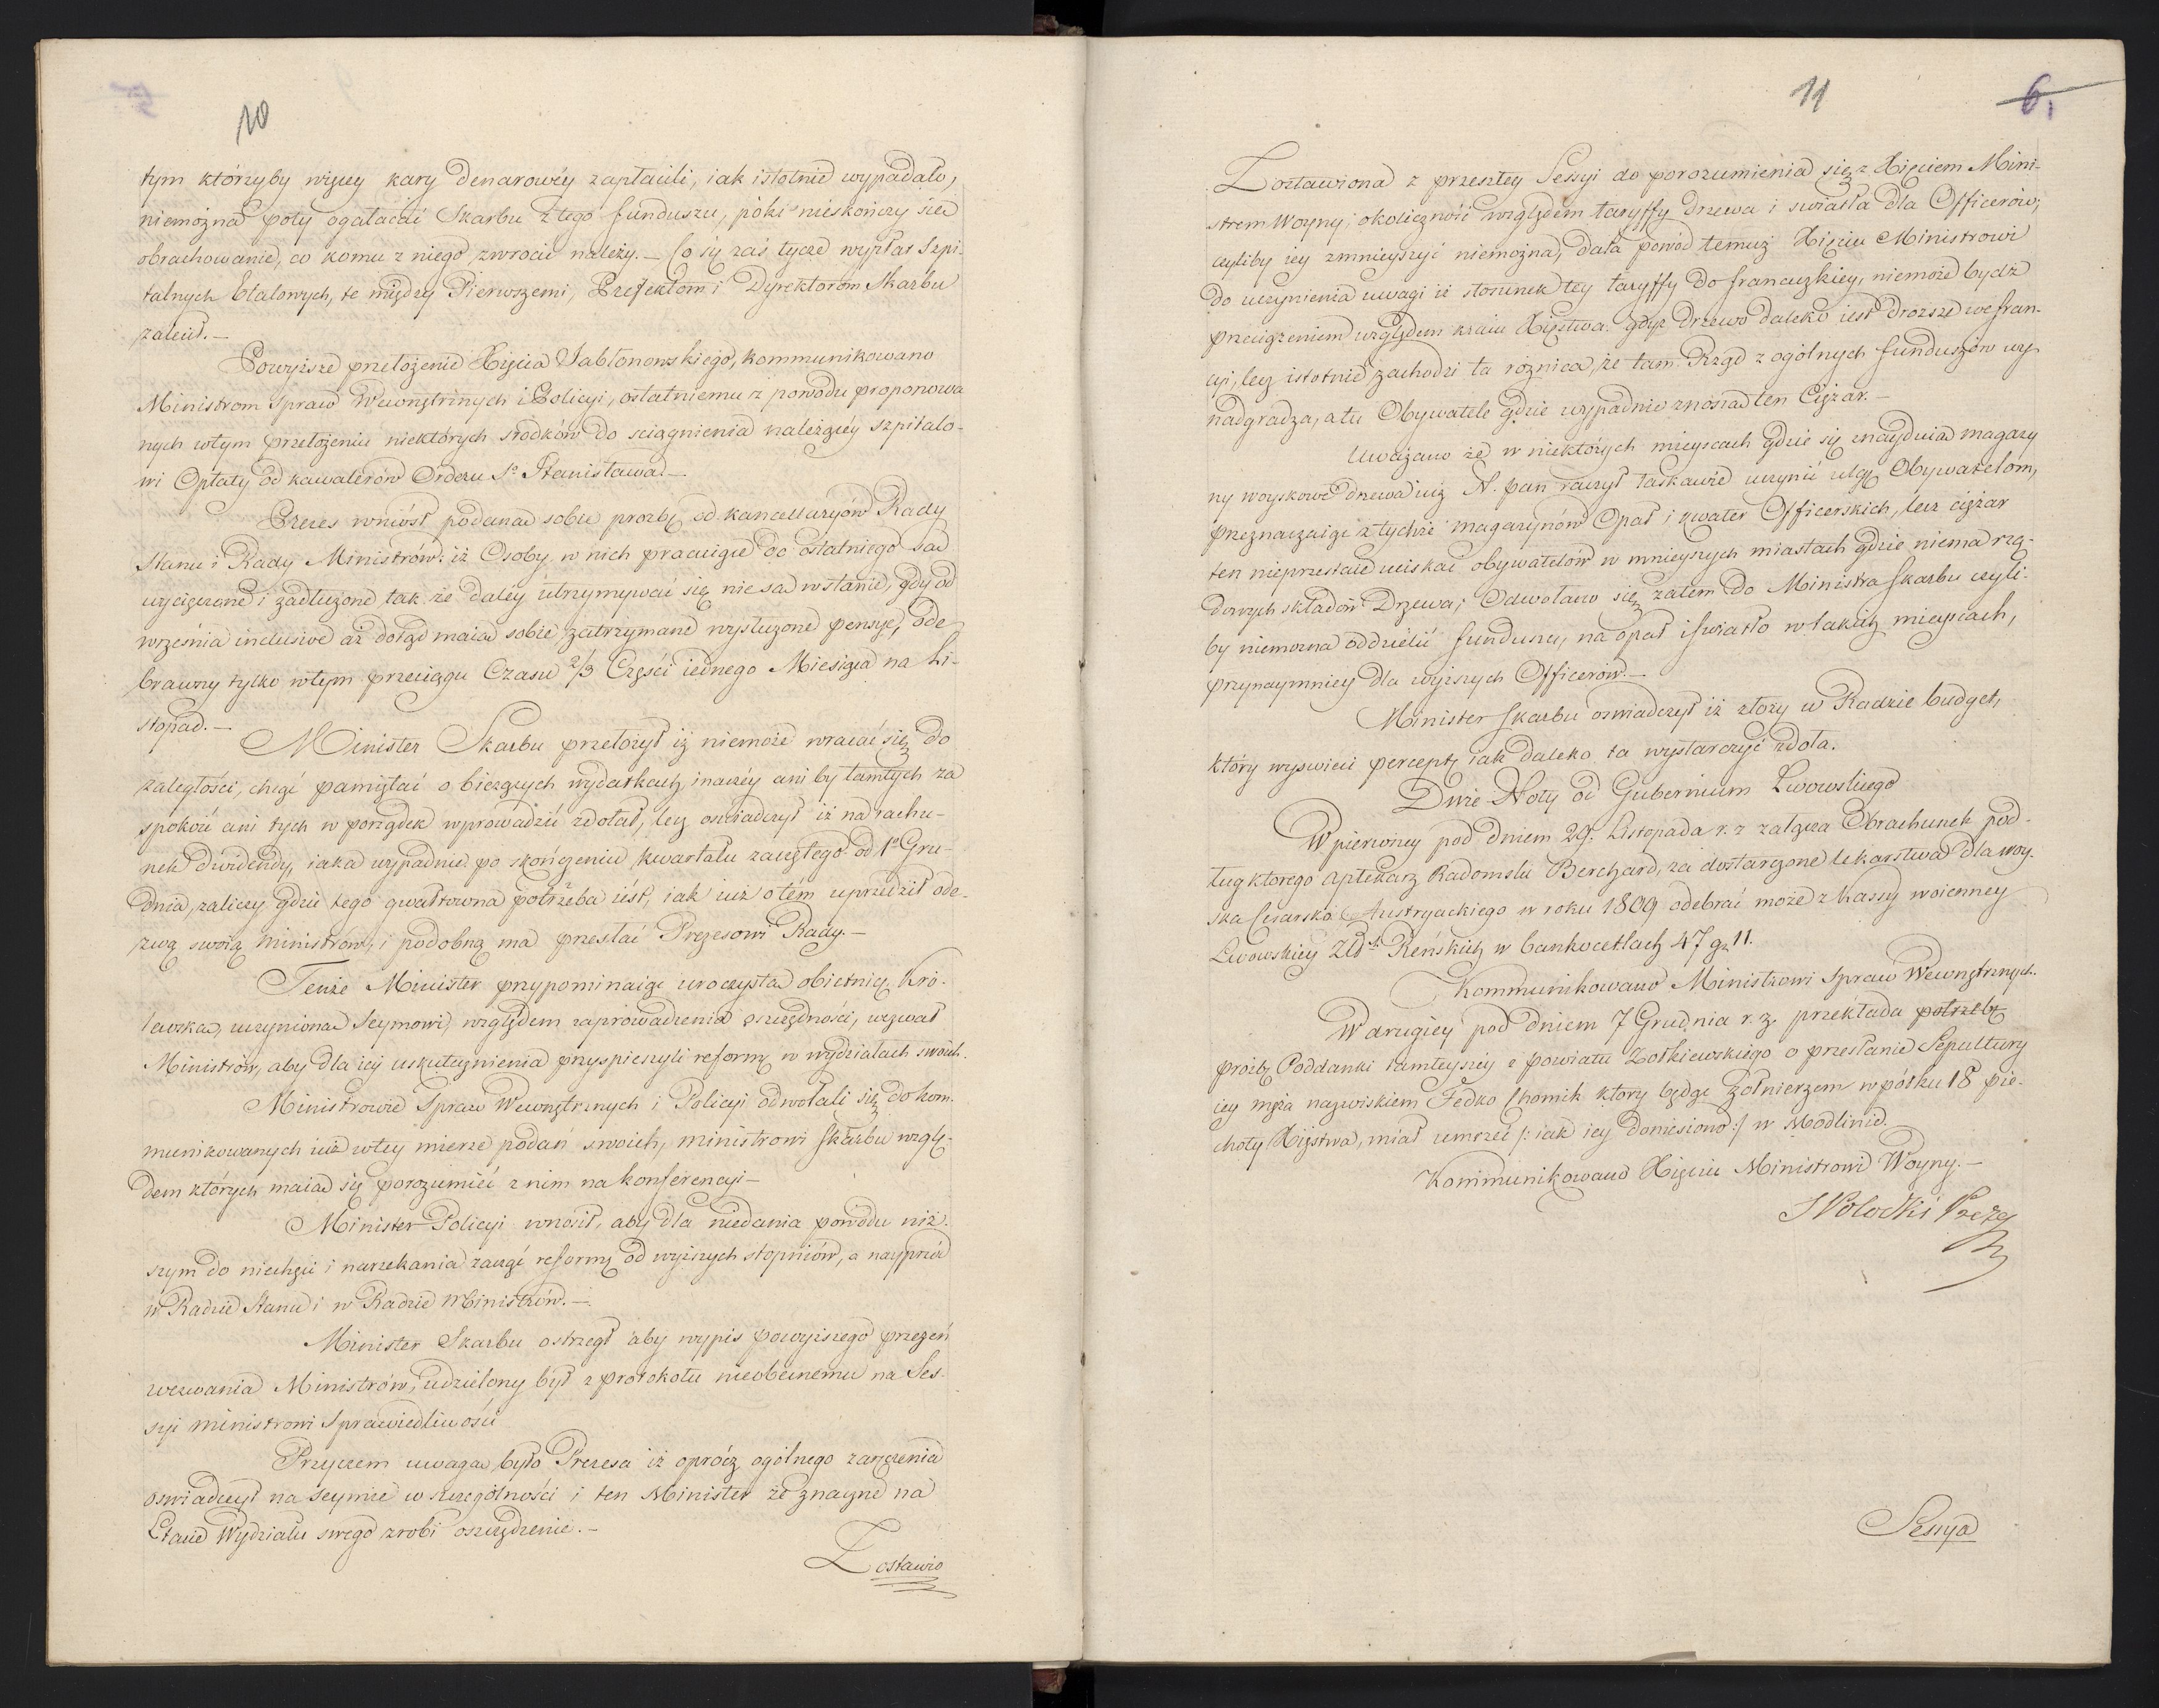 10
tym którzyby więcy kary denarowéy zapłacili, iak istotnie wypadało,
niemożna poty ogałacać Skarbu z tego funduszu, póki nieskończy się
obrachowanie, co komu z niego zwrocić należy. — Co się zaś tycze wypłat Szpi-
talnych Etalowych, te między Pierwszemi, Prefektom i Dyrektorom Skarbu
zalecił. —
Powyższe przełożenie Xięcia Jabłonowskiego, kommunikowano
Ministrom Spraw Wewnętrznych i Policyi, ostatniemu z powodu proponowa
nych wtym przełożeniu niektórych srodków do sciągnienia należącéy szpitalo-
wi Opłaty od kawalerów Orderu Sgo Stanisława. —
Prezes wniósł podaną sobie prozbę od kancellaryów Rady
Stanu i Rady Ministrów: iż Osoby w nich pracuiące do ostatniego są
wycięczone i zadłużone tak że daléy utrzymywać się nie są wstanie, gdy od
września inclusive aż dotąd maią sobie zatrzymane wysłużone pensye, ode
brawszy tylko wtym przeciągu Czasu 2/3 Części iednego Miesiąca na Li-
stopad. —
Minister Skarbu przełożył iż niemoże wracać się do
zaległości, chcąc pamiętać o bieżących wydatkach, inaczéy ani by tamtych za
spokoić ani tych w porządek wprowadzić zdołał, lecz oswiadczył iż na rachu-
nek dwidendy, iaka wypadnie po skończeniu kwartału zaczętego od 1o Gru-
dnia, zaliczy gdzie tego gwałtowna potrzeba iést, iak iuż o tém uprzedził ode-
zwą swoią Ministrów, i podobną ma przesłać Prezesowi Rady. —
Tenże Minister przypominaiąc uroczystą obietnicę Kró-
lewską, uczynioną Seymowi względem zaprowadzenia oszczędności, wzywał
Ministrów, aby dla iéy uskutecznienia przyspieszyli reformę w wydziałach swoich.
Ministrowie Spraw Wewnętrznych i Policyi odwołali się do kom-
munikowanych iuż wtey mierze podań swoich, Ministrowi Skarbu wzglę-
dem których maią się porozumieć z nim na konferencyi —
Minister Policyi wnosił, aby dla niedania powodu niż-
szym do niechęci i narzekania zacząć reformę od wyższych stopniów, a nayprzód
w Radzie Stanu i w Radzie Ministrów. —
Minister Skarbu ostrzegł aby wypis powyższego przezeń
wezwania Ministrów, udzielony był z protokołu nieobecnemu na Ses-
syi Ministrowi Sprawiedliwości
Przyczem uwagą było Prezesa iż oprócz ogólnego zaręczenia
oswiadczył na Seymie w szczególności i ten Minister że znaczne na
Etacie Wydziału swego zrobi oszczędzenie. —
Zostawio
11
6.
Zostawiona z przeszłey Sessyi do porozumienia się z Xięciem Mini-
strem Woyny, okoliczność względem taryffy drzewa i swiatła dla Officerów,
czyliby iey zmnieyszyć niemożna, dała powód temuż Xięciu Ministrowi
do uczynienia uwagi iż stosunek tey taryffy do francuzkiey, niemoże bydź
przeciążeniem względem kraiu Xięstwa: gdyż drzewo daleko iest droższe we fran-
cyi, lecz istotnie zachodzi ta roznica, że tam Rząd z ogólnych funduszów wy
nadgradza, a tu Obywatele gdzie wypadnie znoszą ten Ciężar. —
Uważano że w niektórych mieyscach gdzie się znayduią magazy
ny woyskowe drzewa iuż N. pan raczył łaskawie uczynić ulgę Obywatelom,
przeznaczaiąc z tychże magazynów Opał i kwater Officerskich, lecz ciężar
ten nieprzestaie uciskać obywatelów w mnieyszych miastach gdzie niema rzą-
dowych składów Drzewa; Odwołano się zatem do Ministra Skarbu czyli-
by niemożna oddzielić funduszu, na opał i swiatło w takich mieyscach,
przynaymniey dla wyższych Officerów. —
Minister Skarbu oswiadczył iż złoży w Radzie budget,
który wyswieci perceptę iak daleko ta wystarczyć zdoła.
Dwie Noty od Gubernium Lwowskiego
W pierwszey pod dniem 29. Listopada r. z załącza Obrachunek pod-
ług ktorego Aptekarz Radomski Berchard, za dostarczone lekarstwa dla woy-
ska Cesarsko Austryackiego w roku 1809 odebrać może z Kassy woienney
Lwowskiey Złłch Reńskich w bankocetlach 47 gr 11.
Kommunikowano Ministrowi Spraw Wewnętrznych.
W drugiey pod dniem 7 Grudnia r. z. przekłada potrzebę
prózbę Poddanki tamteyszéy z powiatu Zołkiewskiego o przesłanie Sepultury
iey męża nazwiskiem Fedko Chomik ktory będąc żołnierzem w półku 18 pie-
choty Xięstwa, miał umrzeć /: iak iey doniesiono :/ w Modlinie.
Kommunikowano Xięciu Ministrowi Woyny. —
SPotocki Prezes
Sessya